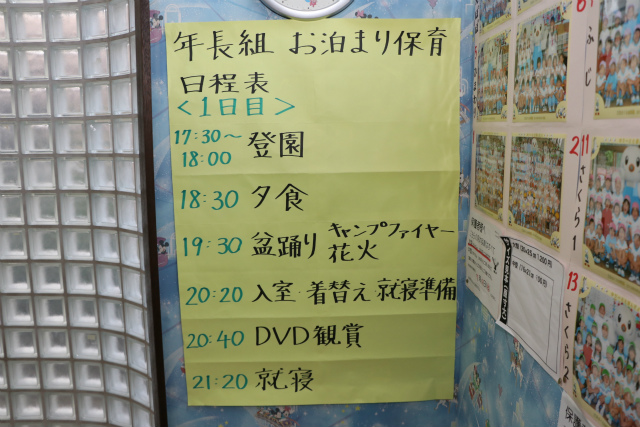 年長組 お泊まり保育
日程表
<1日目>
17:30~
18:00 登園
18:30 夕食
19:30 盆踊り キャンプファイヤー
花火
20:20 入室・着替え・就寝準備
20:40 DVD観賞
21:20 就寝
6
ふじ
11
さくら1
2
13
さくら2